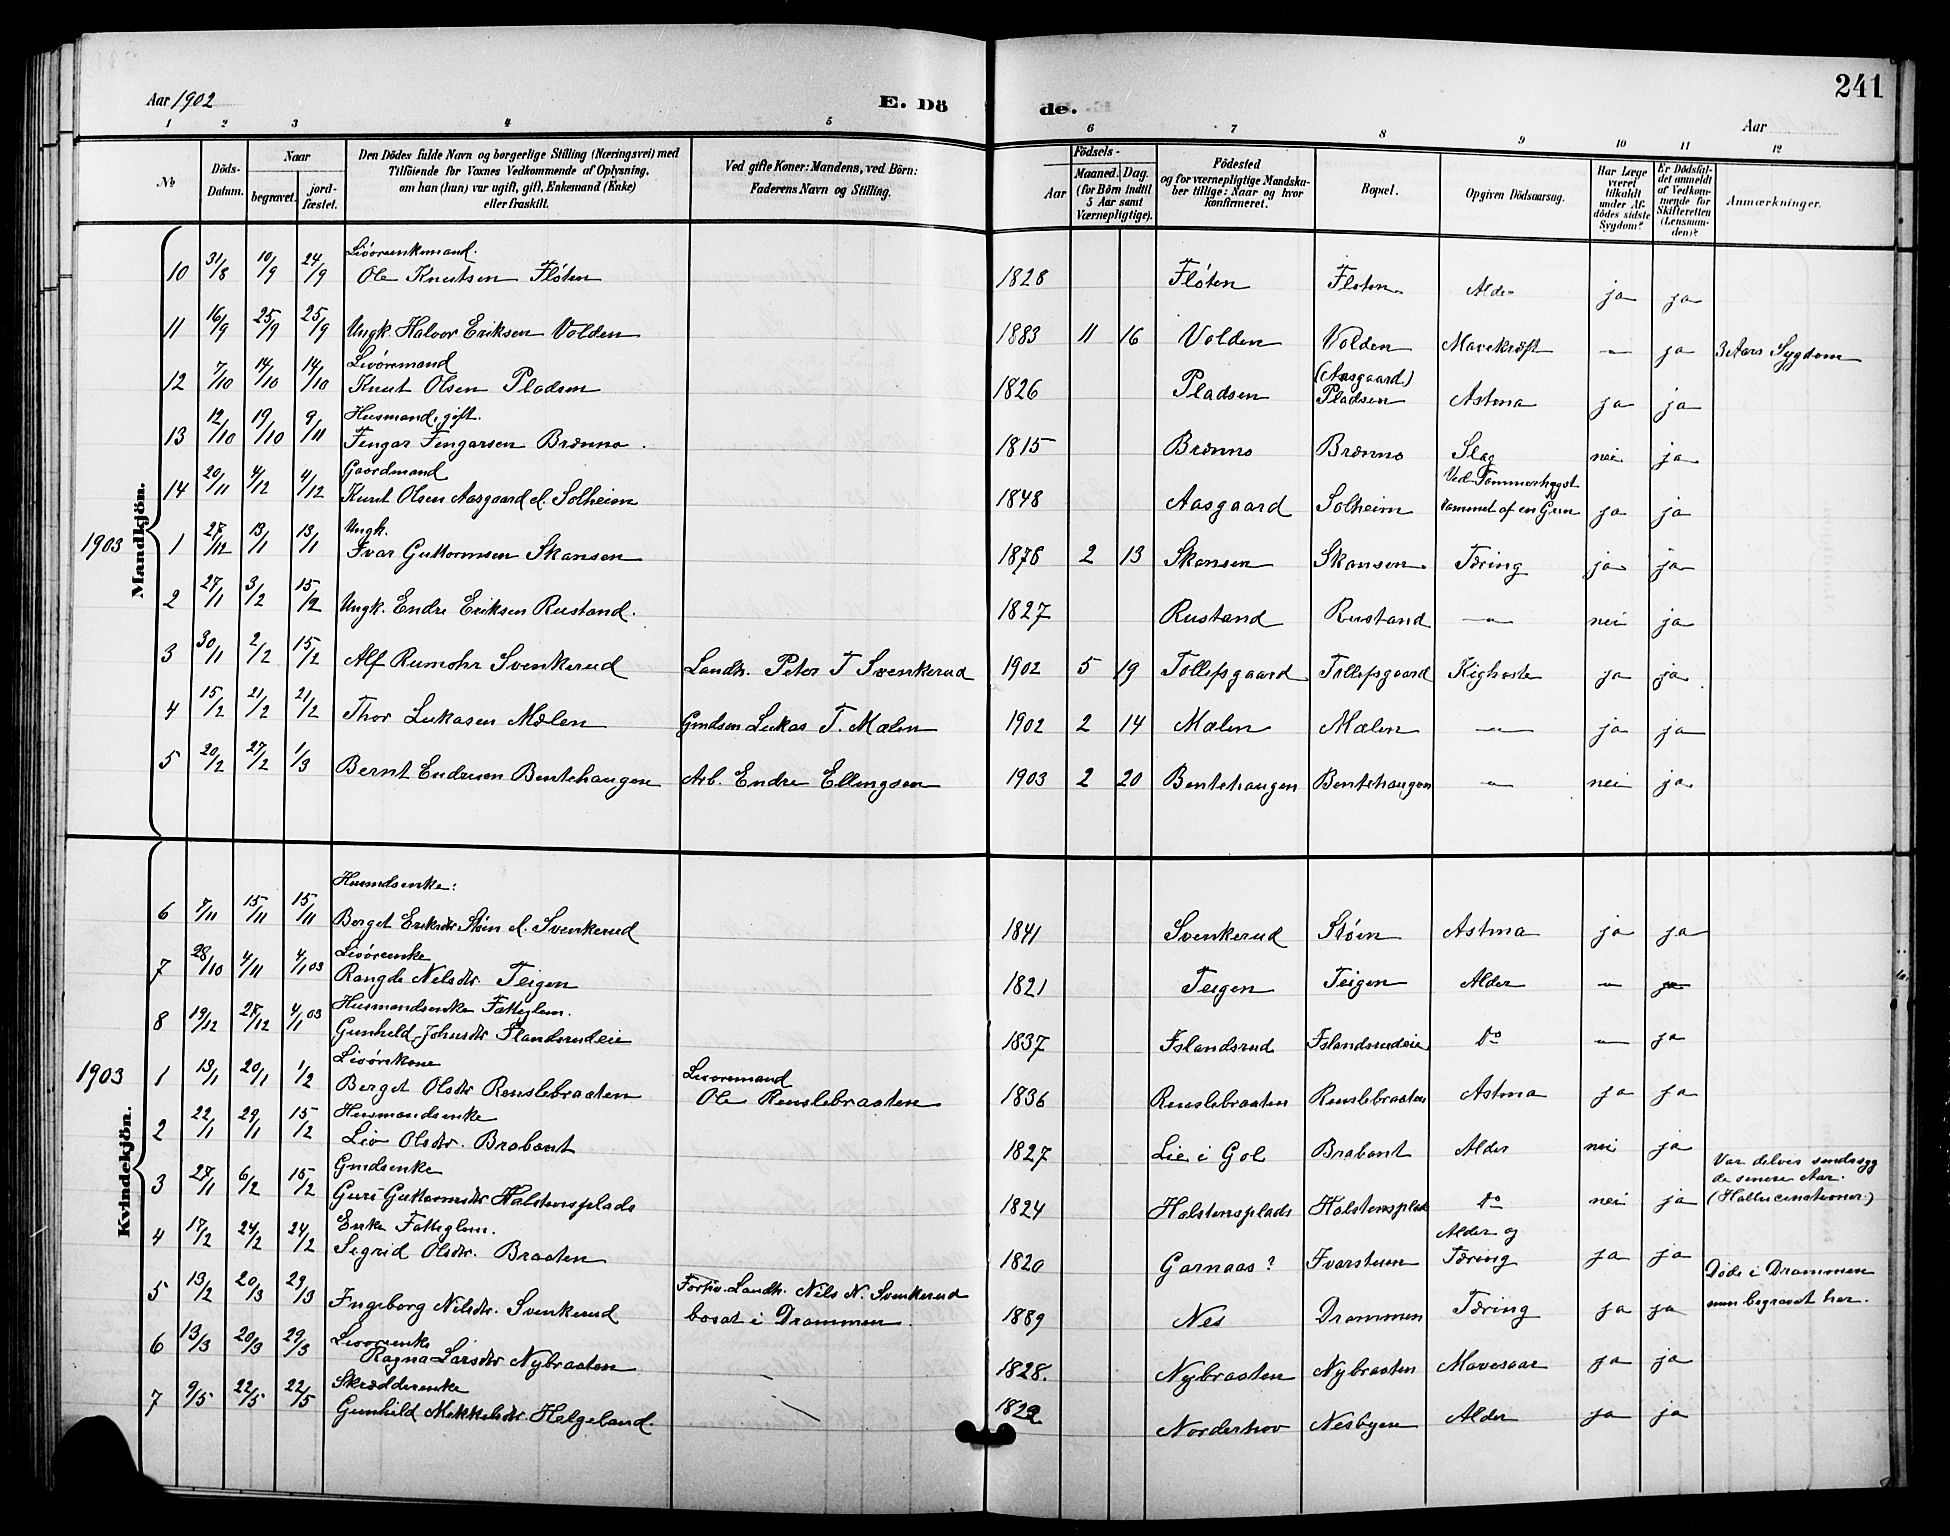 241
Aar 1902
E. Dö
de.
Aar
1 2 3 4 5 6 7 8 9 10 11 12
№
Döds-
Datum.
Naar
begravet.
jord-
fæstet.
Den Dödes fulde Navn og borgerlige Stilling (Næringsvei) med
Tilföiende for Voxnes Vedkommende af Oplysning,
om han (hun) var ugift, gift, Enkemand (Enke)
eller fraskilt.
Ved gifte Koner: Mandens, ved Börn:
Faderens Navn og Stilling.
Födsels-
Aar
Maaned. Dag.
(for Börn indtil
5 Aar samt
Værnepligtige).
Födested
og for værnepligtige Mandska-
ber tillige: Naar og hvor
konfirmeret.
Bopæl.
Opgiven Dödsaarsag.
Har Læge
været
tilkaldt
under Af-
dödes sidste
Sygdom?
Er Dödsfal-
det anmeldt
af Vedkom-
mende for
Skifteretten
(Lensman-
den)?
Anmærkninger.
Mandkjön.
Livöreenkemand.
10 31/8 10/9 24/9 Ole Knutsen Flöten 1828 Flöten Floten Alder ja ja
11 16/9 25/9 25/9 Ungk. Halvor Eriksen Volden 1883 11 16 Volden Volden Mavekræft — ja 3 Aars Sygdom
Livöremand
12 7/10 14/10 14/10 Knut Olsen Pladsen 1826 Pladsen (Aasgaard) Pladsen Astma ja ja
Husmand, gift.
13 12/10 19/10 9/11 Tingar Fingarsen Brænno. 1815 Brænno Brænno Slag nei ja
Gaardmand
14 20/11 4/12 4/12 Knut Olsen Aasgaard el. Solheim 1848 Aasgaard Solheim Ved Tömmerhugst rammet af en Gren ja ja
Ungk.
1903 1 27/12 13/1 13/1 Ivar Guttormsen Skansen 1878 2 13 Skansen Skansen Tæring ja ja
2 27/1 3/2 15/2 Ungk. Endre Eriksen Rustand. 1827 Rustand Rustand — nei ja
3 30/1 2/2 15/2 Alf Rumohr Svenkerud Landh. Peter T Svenkerud 1902 5 19 Tollefsgaard Tollefsgaard Kighoste ja ja
4 15/2 21/2 21/2 Thor Lukasen Mælen Gmdsøn Lukas T. Mælen 1902 2 14 Mælen Mælen — ja ja
5 20/2 27/2 1/3 Bernt Endresen Bentehaugen Arb. Endre Ellingsen 1903 2 20 Bentehaugen Bentehaugen — nei ja
Kvindekjön.
Husmdsenke:
6 7/11 15/11 15/11 Berget Eriksdtr. Stöen el. Svenkerud 1841 Svenkerud Stöen Astma ja ja
Livöreenke
7 28/10 4/11 4/1 03 Rangdi Nelsdtr. Teigen 1821 Teigen Teigen Alder — ja
Husmandsenke Fattiglem.
8 19/12 28/12 4/1 03 Gunhild Johnsdtr Islandsrudeie 1837 Islandsrud Islandsrudeie Do — ja
Livörekone
1903 1 13/1 20/1 1/2 Berget Olsdtr Renslebraaten Livoremand Ole Renslebraaten 1836 Renslebraaten Renslebraaten Astma ja ja
Husmandsenke
2 22/1 29/1 15/2 Liv Olsdtr. Brabant 1827 Lie i Gol Brabant Alder nei ja
Gmdsenke
3 27/1 6/2 15/2 Guri Guttormsdtr Halstensplads 1824 Halstensplads Halstensplads Do nei ja Var delvis sindssyg de senere Aar. (Hallucinationer.)
Enke Fattiglem.
4 17/2 24/2 24/2 Sigrid Olsdtr. Braaten 1820 Garnaas? Ivarstuen Alder og Tæring ja ja
5 13/2 20/3 29/3 Ingeborg Nilsdtr. Svenkerud Forhv. Landh. Nels N. Svenkerud bosat i Drammen. 1889 Nes Drammen Tæring ja ja Döde i Drammen men begravet her.
Livoreenke
6 13/3 20/3 29/3 Ragna Larsdtr Nybraaten 1828. Nybraaten Nybraaten Mavesaar ja ja
Skrædderenke
7 9/5 22/5 22/5 Gunhild Mekkelsdtr. Helgeland. 1822 Norderhov Nesbyen Alder ja ja